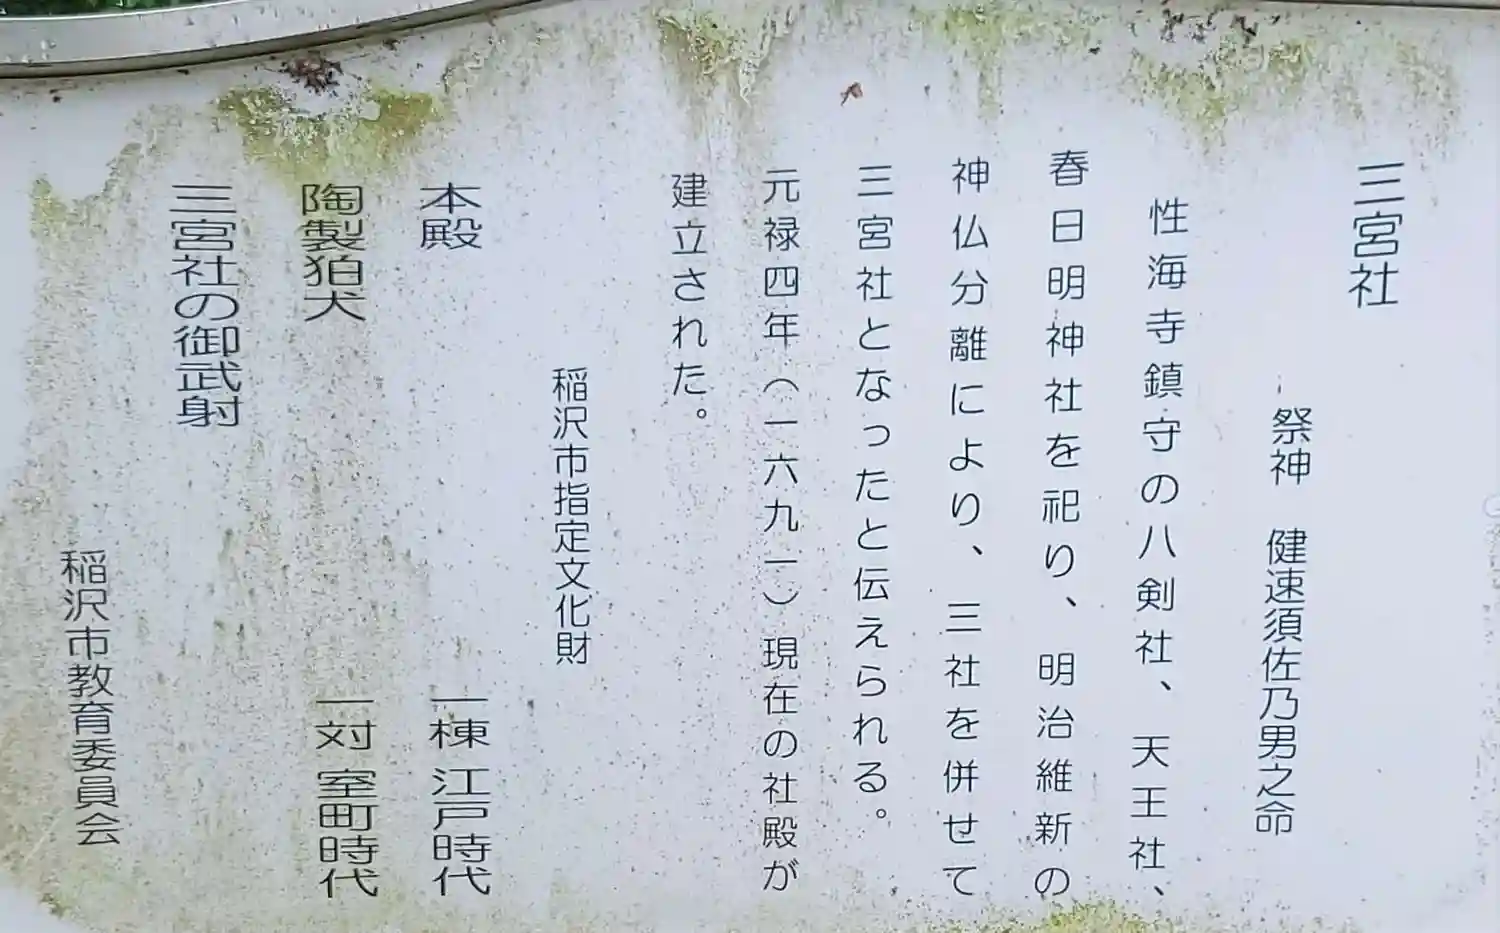 三宮社
祭神　健速須佐乃男之命
性海寺鎮守の八剣社、天王社、
春日明神社を祀り、明治維新の
神仏分離により、三社を併せて
三宮社となったと伝えられる。
元禄四年（一六九一）現在の社殿が
建立された。
稲沢市指定文化財
本殿　一棟 江戸時代
陶製狛犬　一対 室町時代
三宮社の御武射
稲沢市教育委員会